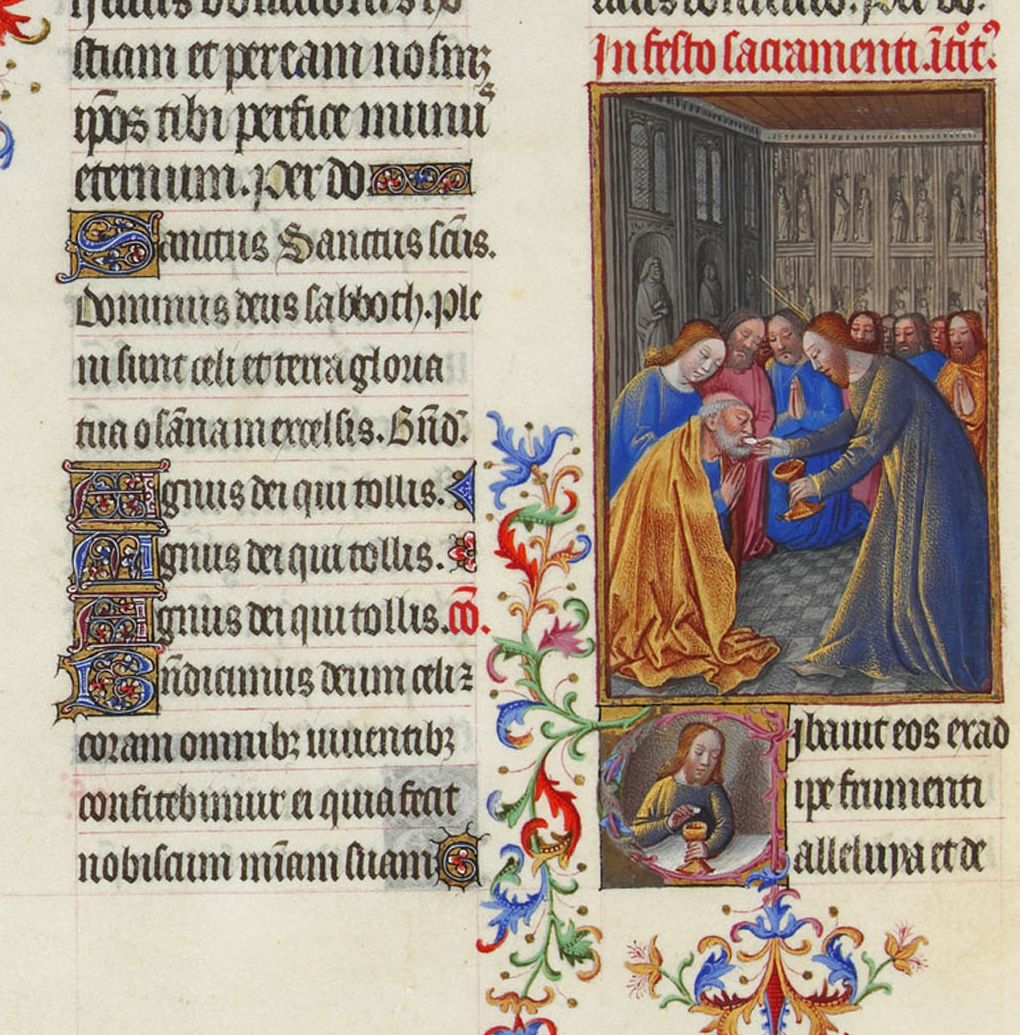 sticiam et per eam nosmꝫ
ip̄os tibi perfice munuˢ
eternum. Per do
Sanctus Sanctus sc̄us.
Dominus deus sabboth. Ple
ni sunt celi et terra gloria
tua osanna in excelsis. Bn̄d̄.
Agnus dei qui tollis.
Agnus dei qui tollis.
Agnus dei qui tollis. co̅.
Bn̄dicimus deum celi ⁊
coram omnibꝫ uiuentibꝫ
confitebimur ei quia fecit
nobiscum mīam suam
In festo sacramenti.
Cibauit eos ex ad
ipe frumenti
alleluya et de